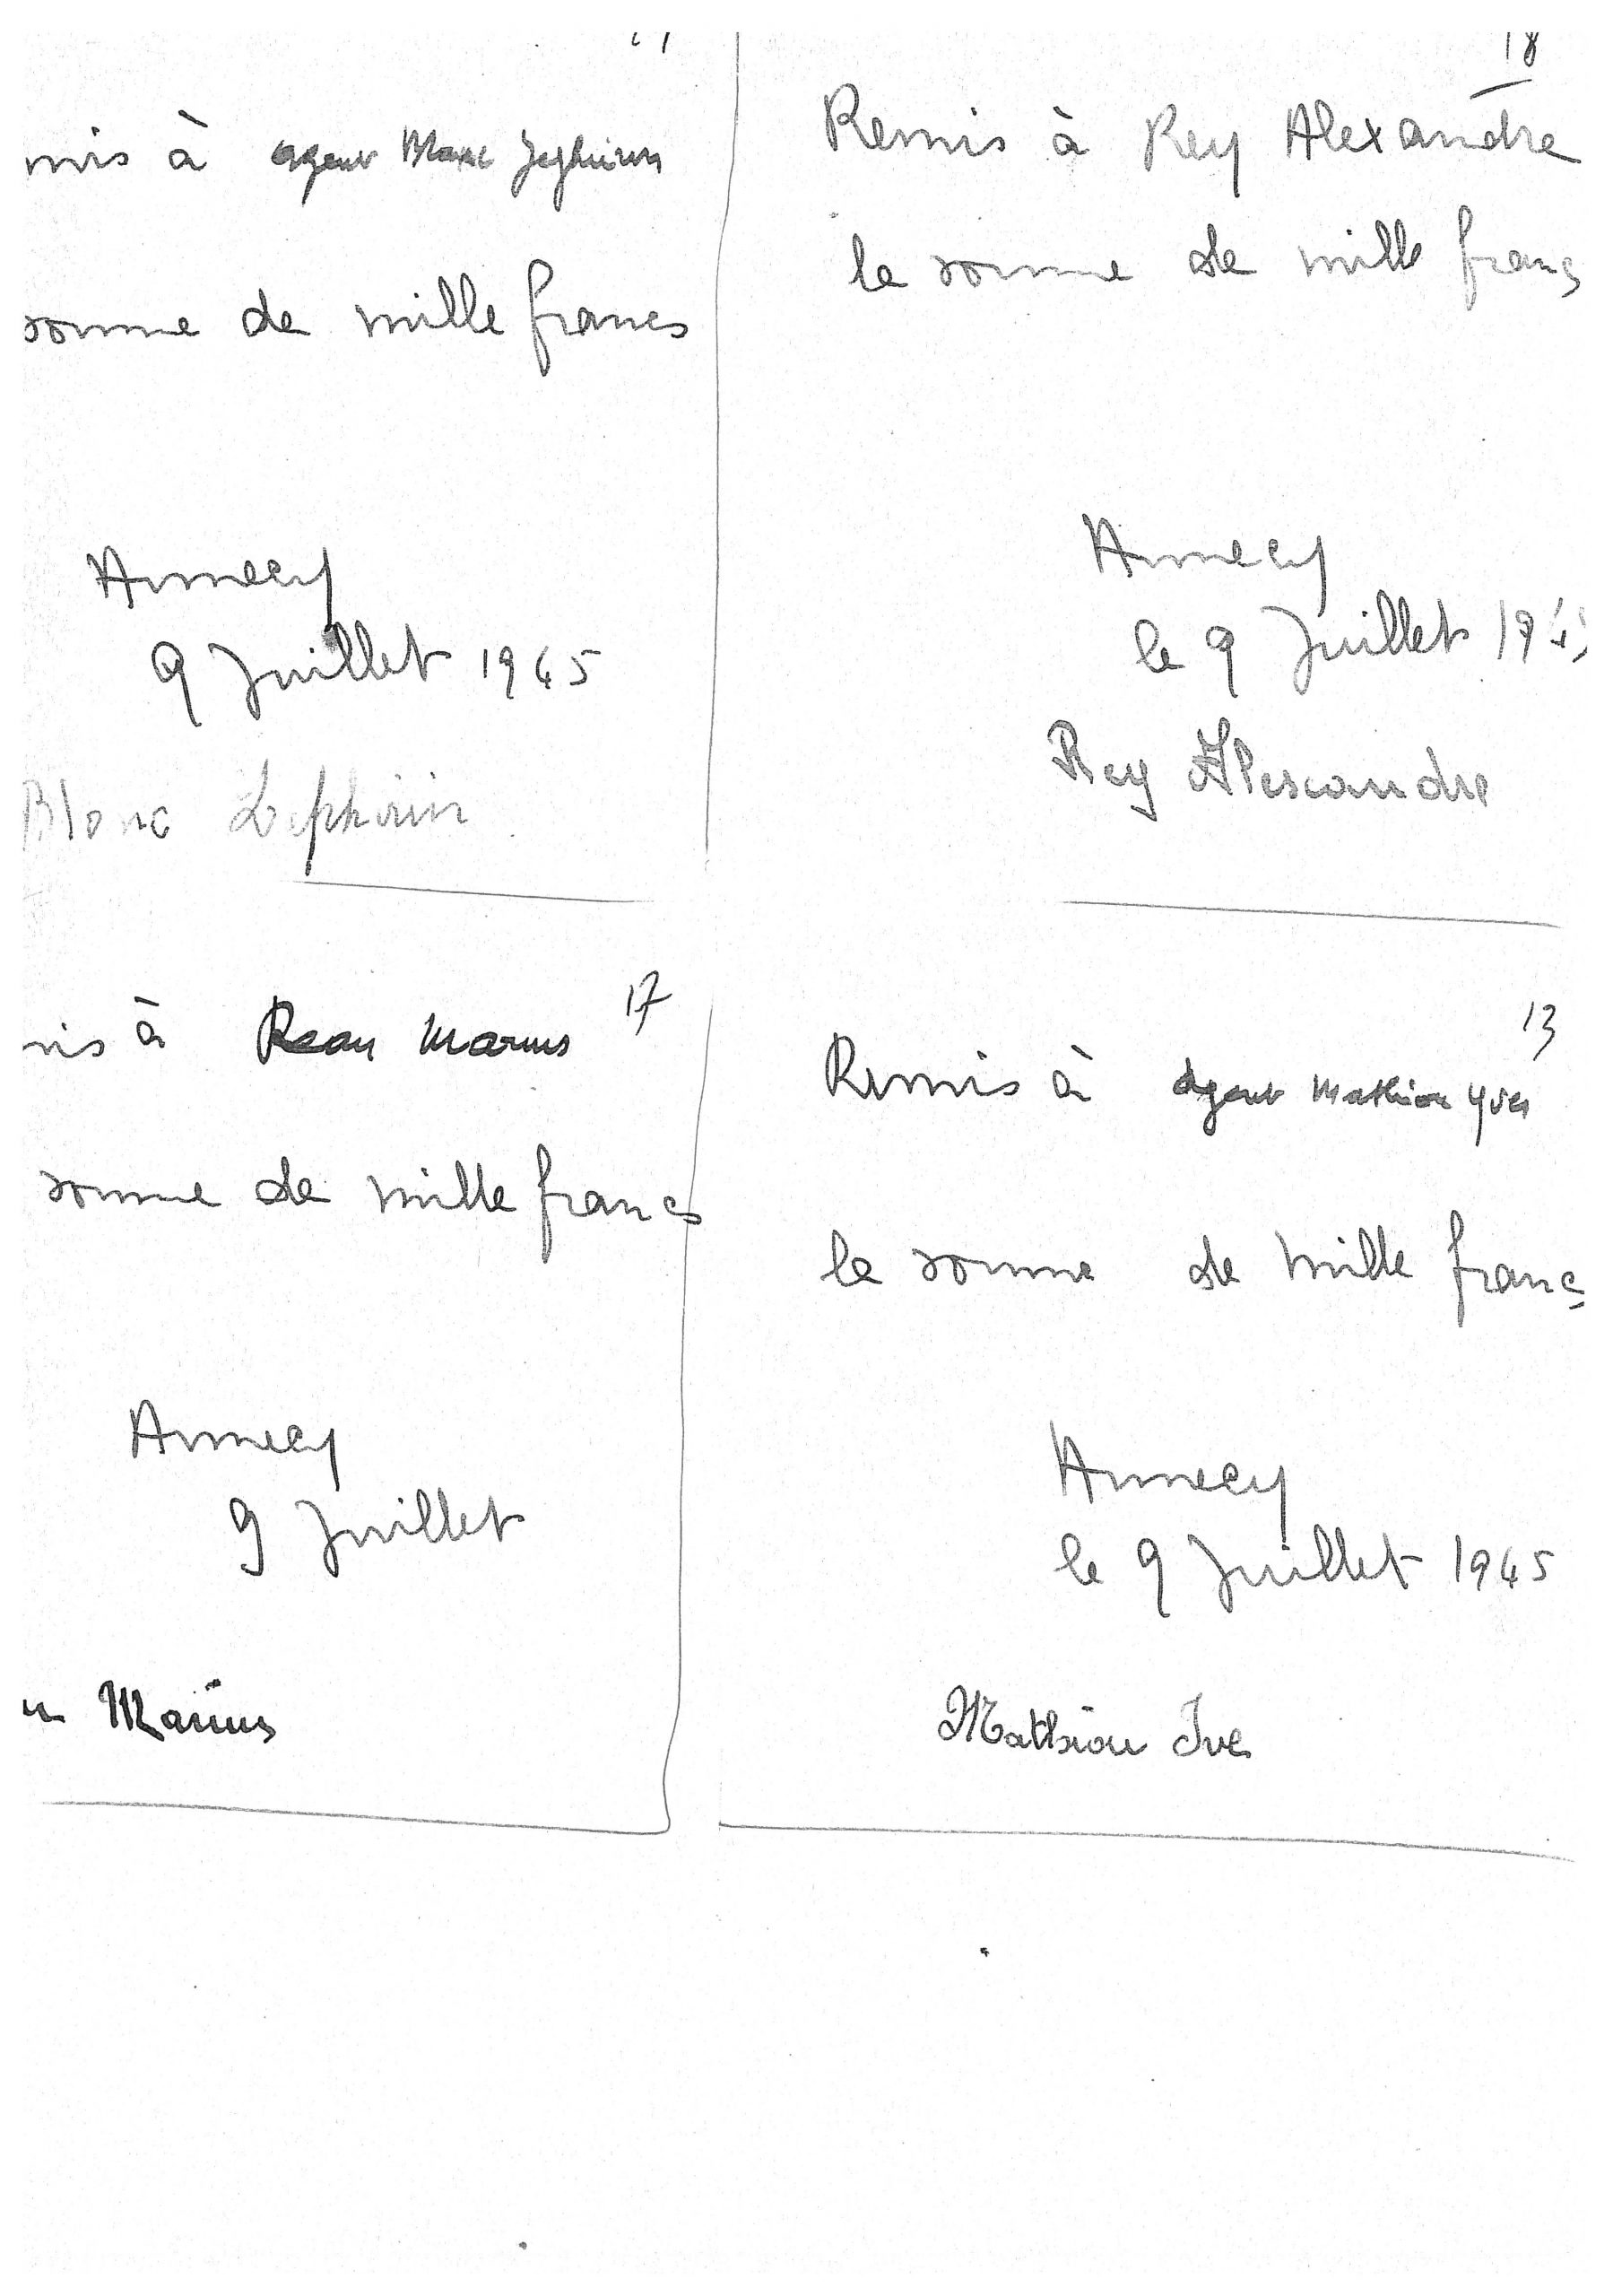 mis à agent Blanc Zephirin
somme de mille francs
Annecy
9 Juillet 1945
Blanc Zephirin
18
Remis à Rey Alexandre
la somme de mille francs
Annecy
le 9 Juillet 194
Rey Alexandre
17
mis à Marius
somme de mille francs
Annecy
9 Juillet
Marius
13
Remis à agent Mathieu Yves
la somme de mille francs
Annecy
le 9 Juillet 1945
Mathieu Ives